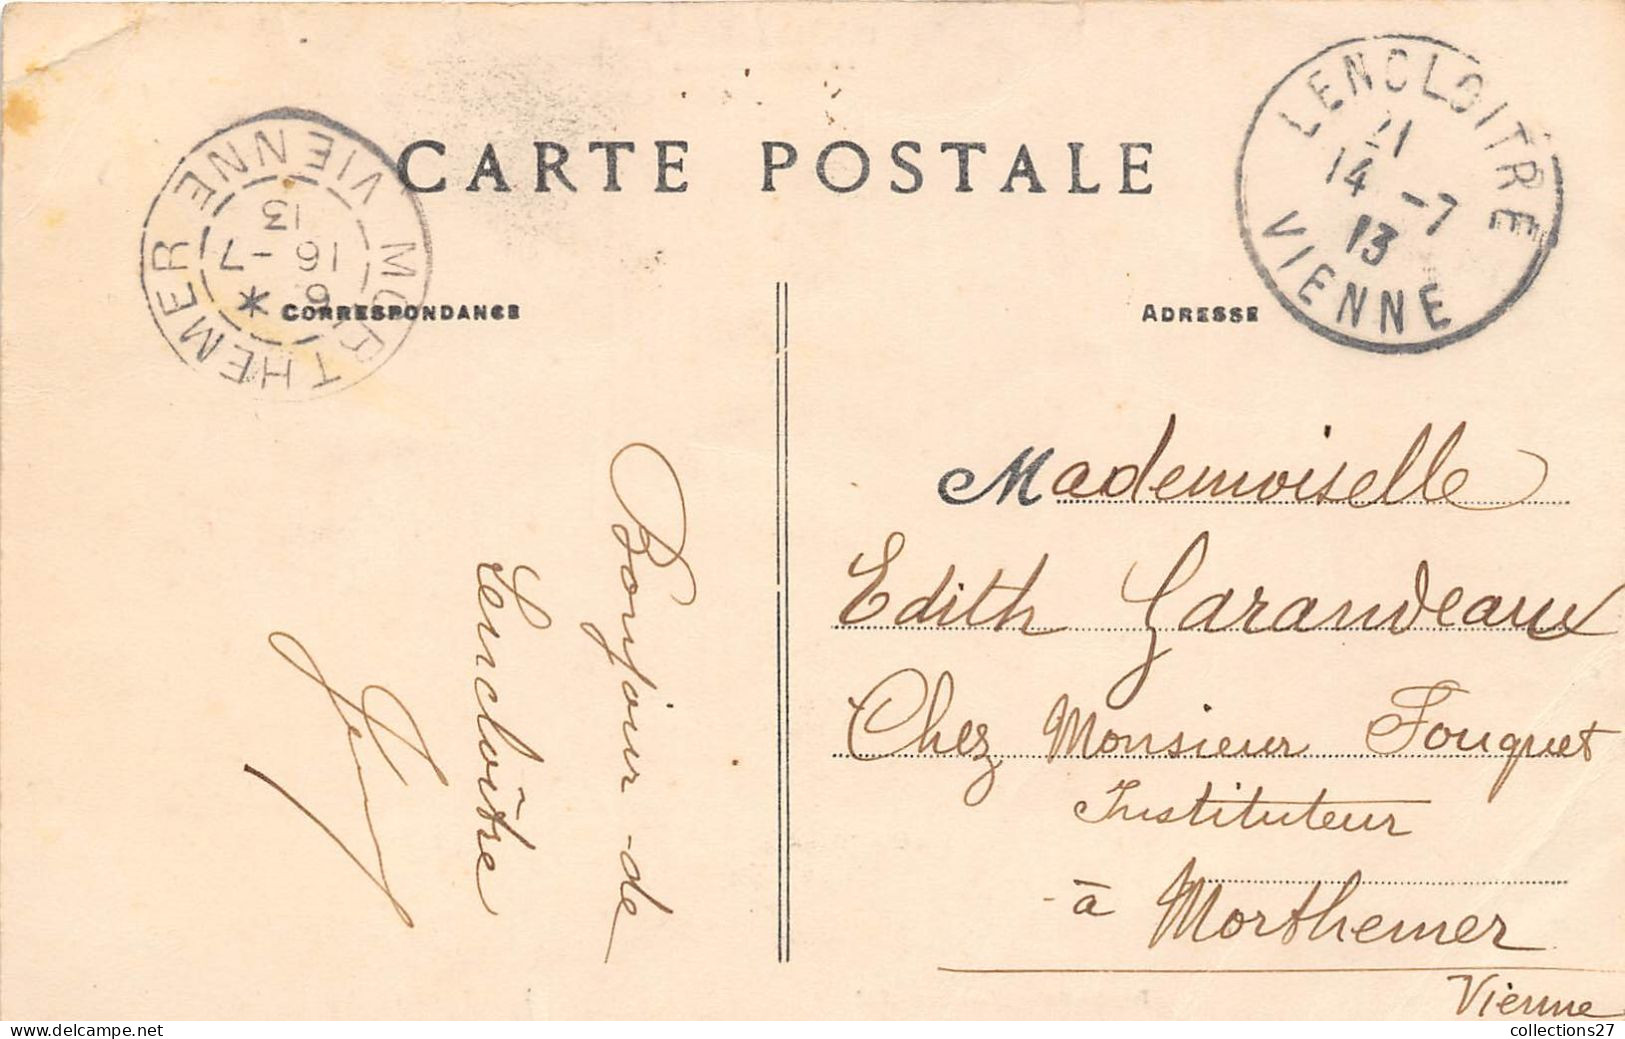 CARTE POSTALE
CORRESPONDANCE
ADRESSE
LENCLOITRE
21
14 -7
13
VIENNE
MORTHEMER
* 6
16 -7
13
VIENNE
Bonjour de
Lencloître
Mademoiselle
Edith Garandeaux
Chez Monsieur Fouquet
Instituteur
à Morthemer
Vienne
collections27